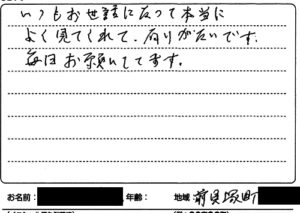 いつもお世話になって本当に
よく見てくれて、有りがたいです.
毎日お願いしてます。
お名前： 年齢： 地域：前貝塚町